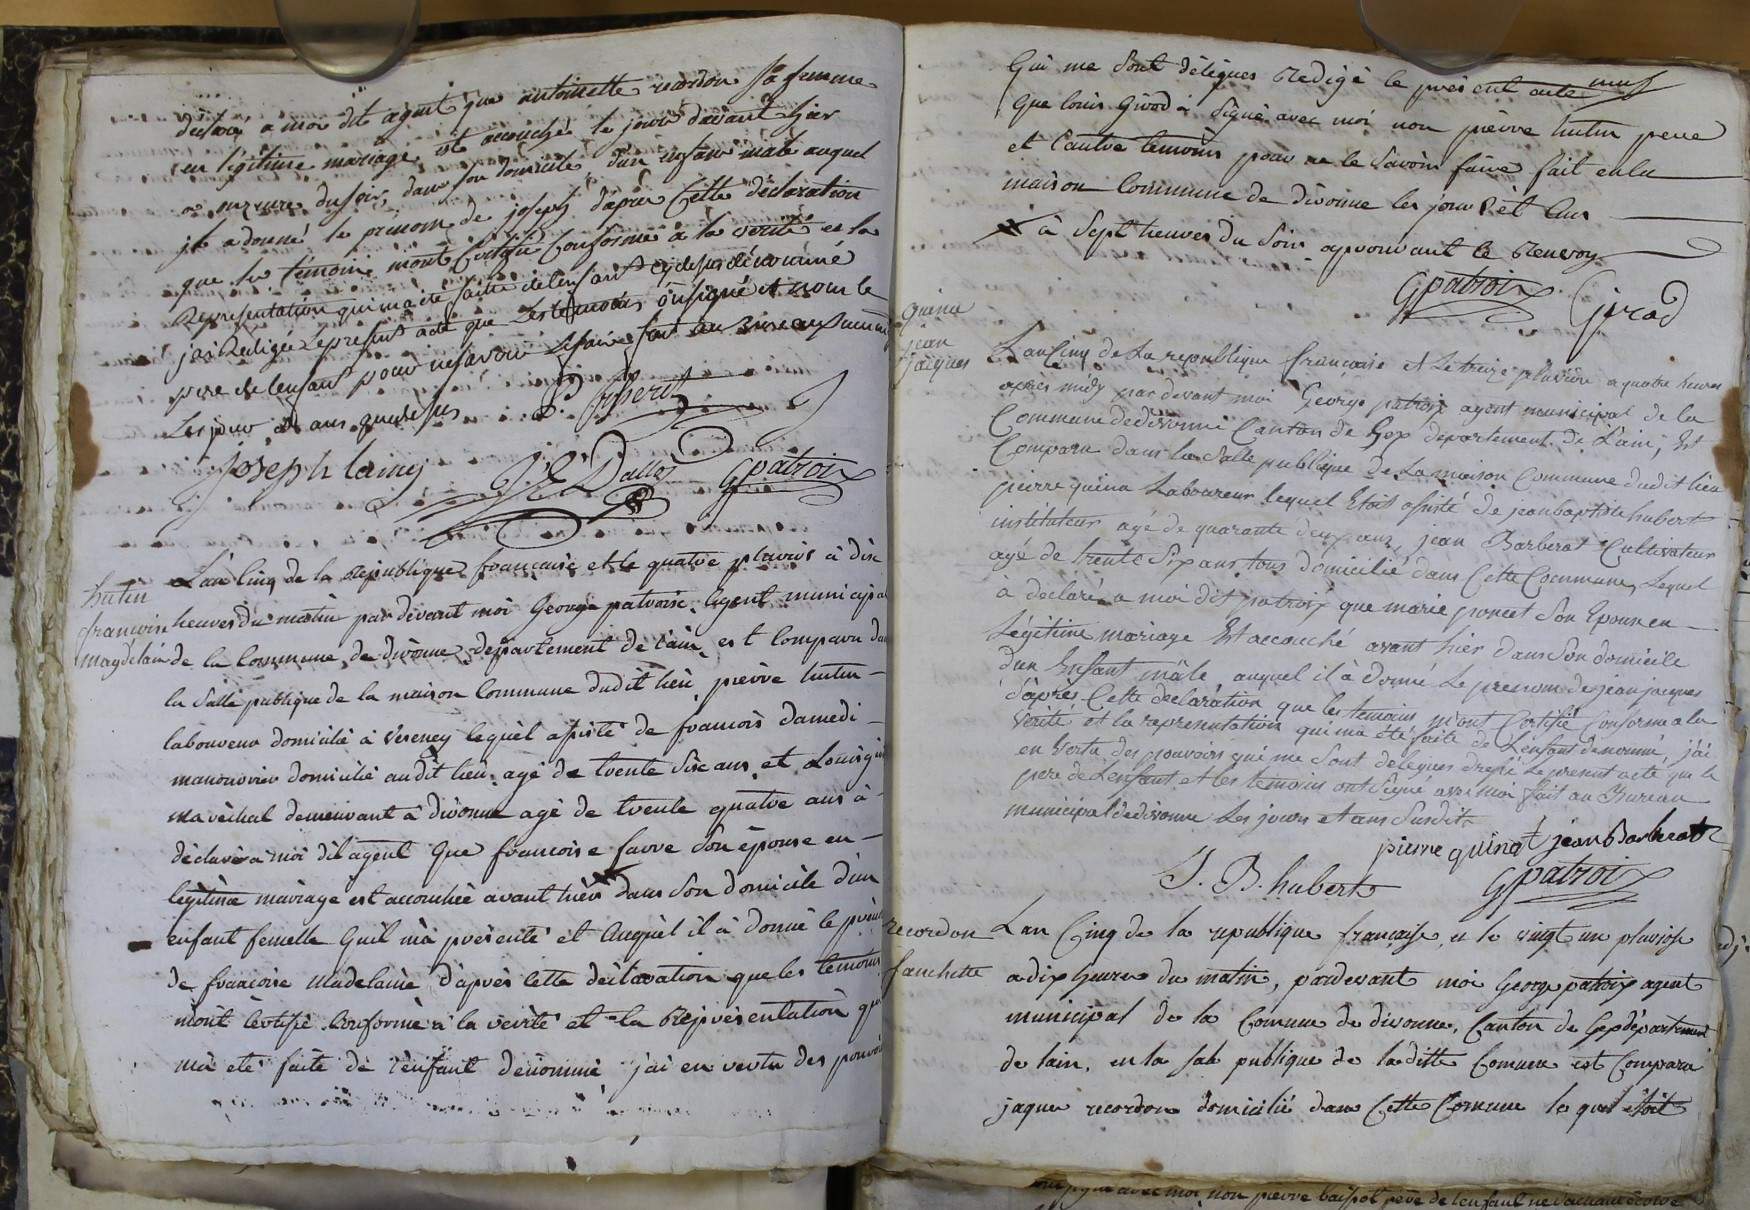 déclaré a moi dit agent que antoinette recordon sa femme
en légitime mariage est accouché le jour davant hier
a onzeure du soir, dans son domicile d'un enfant mâle auquel
il a donné le prénom de joseph d'après Cette déclaration
que les témoins m'ont Certifié Conforme à la vérité et la
Representation qui m'a été faitte de l'enfant cy dessus dénommé
j'ai Redigée le present acte que Les témoins on signé et non le
pere de lenfant pour ne savoir le faire fait au Bureau municipal
Les jour et ans que desus
joseph lainy J E Dalloz G patroix
hutin
francoise
magdelaine
L'an Cinq de la republique francaise et le quatre pluviose à dix
heures du matin par devant moi George patroix Agent municipal
de la Commune de divonne, département de l'ain, est Comparu dans
la Salle publique de la maison Commune dudit lieu, pierre hutin
laboureur domicilié à Veseney lequel assisté de francois damedi
manouvrier domicilié audit lieu, agé de trente Six ans et Louis gi
maréchal demeurant à divonne agé de trente quatre ans à
déclaré a moi dit agent Que francoise favre Son épouse en
légitime mariage est accouchée avant hier dans Son domicile d'un
enfant femelle Quil m'à présenté et Auquel il à donné le prén
de francoise Madelaine d'apres Cette déclaration que les temoins
m'ont Certifié Conforme à la verité et la Représentation qui
m'à eté faite de l'enfant dénommé j'ai en vertu des pouvoi
Qui me Sont délégues Redigé le présent acte
Que louis Girod à Signé avec moi non pierre hutin pere
et L'autre témoin pour ne le Savoir faire fait en la
maison Commune de divonne les jour et an
à Sept heures du Soir approuvant le Renvoy
G patroix Girod
quina
jean
jacques
L'an Cinq de La republique francaise et Le treize pluviose a quatre heures
apres midy par devant moi George patroix agent municipal de la
Commune de divonne Canton de Gex departement de L'ain, Est
Comparu dans la Salle publique de La maison Commune dudit lieu
pierre quina Laboureur lequel Etoit assisté de jean baptiste hubert
instituteur agé de quarante deux ans, jean Barberat Cultivateur
agé de trente Six ans tous domicilié dans Cette Commune, Lequel
à declaré a moi dit patroix que marie poncet Son Epouse en
Légitime mariage Est accouché avant hier dans Son domicile
d'un Enfant mâle, auquel il à donné Le prenom de jean jacques
d'après Cette déclaration que les temoins m'ont Certifié Conforme a la
Verité et la representation qui ma été faite de L'enfant denommé, j'ai
en Vertu des pouvoirs qui me Sont delegues dressé Le present acte que le
pere de L'enfant et les temoins ont Signé avec moi fait au Bureau
municipal de divonne Les jours et ans Susdit
pierre quinat jean Barberat
J. B. hubert G patroix
recordon
fanchette
L an Cinq de la republique francaise, et le vingt un pluviose
a dix heures du matin, pardevant moi George patroix agent
municipal de la Comune de divonne, Canton de Gex département
de lain, en la sale publique de la ditte Comune est Comparu
jaques recordon domicilié dans Cette Comune le quel étoit